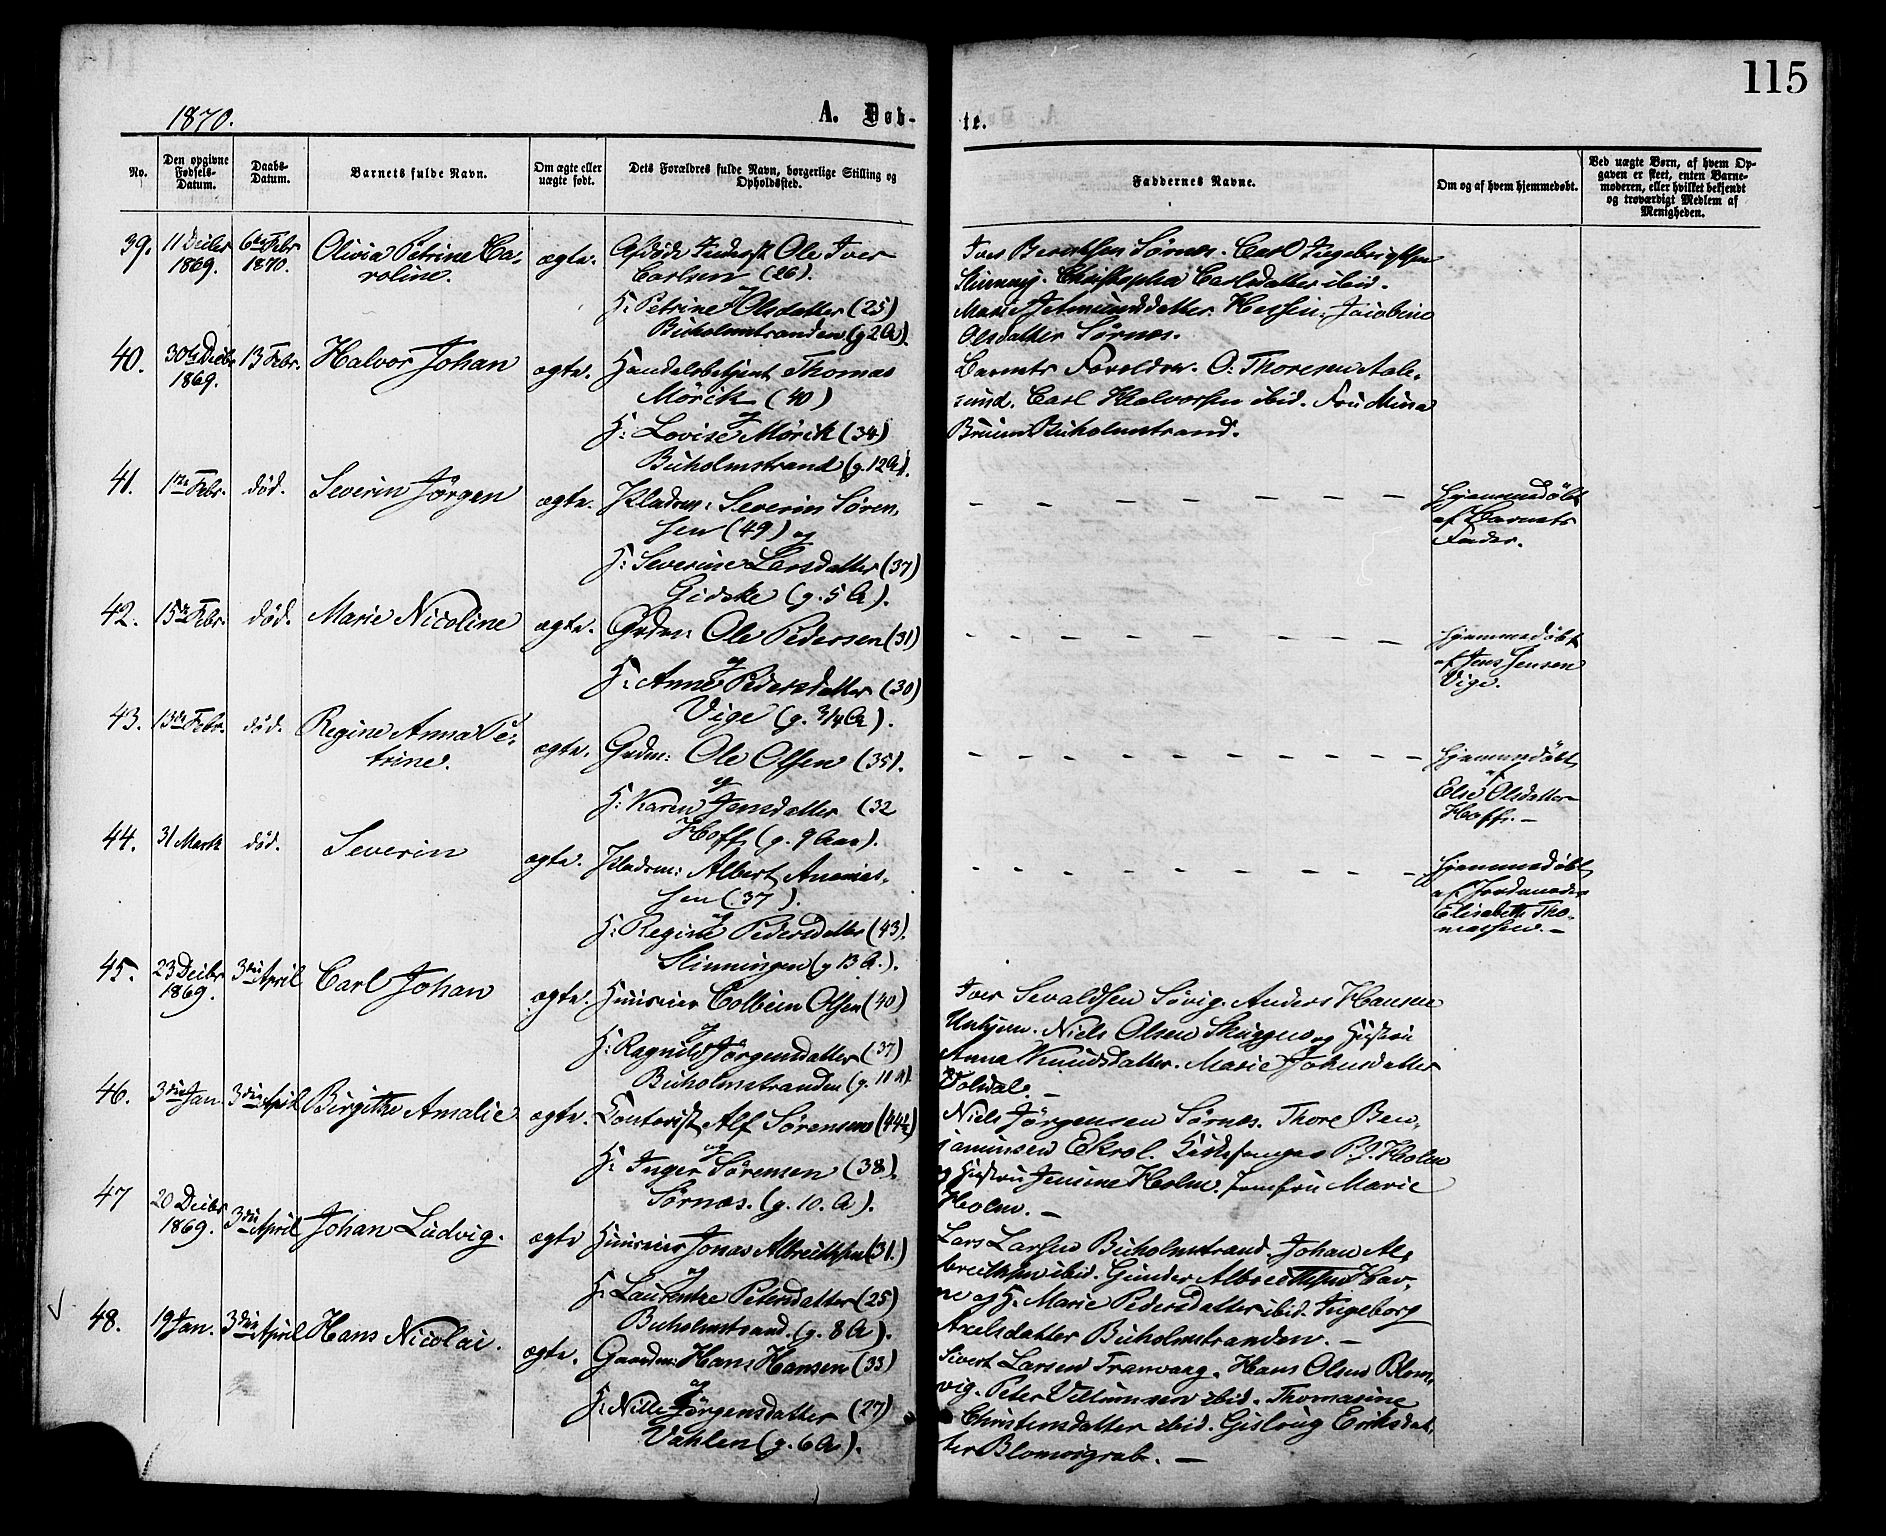 115
1870.
A. Døb-
te.
No.
Den opgivne
Fødsels-
Datum.
Daabs-
Datum.
Barnets fulde Navn.
Om ægte eller
uægte født.
Dets Forældres fulde Navn, borgerlige Stilling og
Opholdssted.
Faddernes Navne.
Om og af hvem hjemmedøbt.
Ved uægte Børn, af hvem Op-
gaven er skeet, enten Barne-
moderen, eller hvilket bekjendt
og troværdigt Medlem af
Menigheden.
39. 11 Decbr 1869. 6te Febr 1870. Olivia Petrine Ca-
roline.
ægte. Ole Iver
Carlsen (26).
og
H: Petrine Olsdatter (25)
Buholmstranden (g 2 A).
Iver Sørnæs. Carl Ingebrigtsen
Christopha Carlsdatter ibid.
Marie Hessen. Jacobine
Olsdatter Sørnæs.
40. 30te Decbr 1869. 13 Febr. Halvor Johan
ægte. Handelsbetjent Thomas
Mörck (40)
og
H: Lovise Mörck (34)
Buholmstrand (g. 12 A).
Barnets Forældre. O. Thoresen Aale-
sund. Carl Halvorsen ibid. Fru Mina
Bruun Buholmstrand.
41. 1ste Febr. død. Severin Jørgen
ægte. Pladsm: Severin Søren-
sen (49) og
H: Severine Larsdatter (37)
Gidske (g. 5 A).
Hjemmedøbt
af Barnets
Fader.
42. 15de Febr. død. Marie Nicoline
ægte. Grdm: Ole Pedersen (31)
og
H: Anne Pedersdatter (30)
Vige (g. 3/4 A).
Hjemmedøbt
af Jens Jensen
Vige.
43. 13de Febr. død. Regine Anna Pe-
trine.
ægte. Grdm: Ole Olsen (35).
og
H: Karen Jensdatter (32
Hoff (g. 9 Aar).
Hjemmedøbt
af
Else Olsdatter
Hoff. —
44. 31 Marts død. Severin
ægte. Pladsm: Albert Ananias-
sen (37).
og
H: Regine Pedersdatter (43).
Slinningen (g 13 A.).
Hjemmedøbt
af Jordemoder
Elisabeth Tho-
massen. —
45. 23 Decbr 1869. 3die April Carl Johan
ægte. Huuseier Colbein Olsen (40)
og
H: Ragnild Jørgensdatter (37)
Buholmstranden (g. 11 A).
Iver Sevaldsen Søvig. Anders Hansen
Niels Olsen og Hustru
Anna Knudsdatter. Marie Johnsdatter
46. 3die Jan. 3die April Birgithe Amalie
ægte. Contorist Alf Sørensen (44½)
og
H: Inger Sørensen (38).
Sørnæs. (g. 10. A).
Niels Jørgensen Sørnæs. Thore Ben-
jaminsen Ekrol. P. J. Holm
og Hustru Jensine Holm. Jomfru Marie
Holm. —
47 20 Decbr 1869. 3die April Johan Ludvig.
ægte Huuseier Jonas Albrethsen (31.)
og
H: Laurentze Petersdatter (25)
Buholmstrand. (g. 8 A).
Lars Larsen Buholmstrand. Johan Al-
brethsen ibid. Gunder Albrethsen Hav-
ne og H. Marie Pedersdatter ibid. Ingeborg
Axelsdatter Buholmstranden. —
48. 19 Jan. 3die April Hans Nicolai.
ægte. Gaardm: Hans Hansen (33)
og
H: Nille Jørgensdatter (27)
Vahlen (g. 6 A.).
Sivert Larsen Tranvaag. Hans Olsen Blom-
vig. Peter Villumsen ibid. Thomasine
Christensdatter ibid. Gislaug Eriksdat-
ter Blomvigrab. —